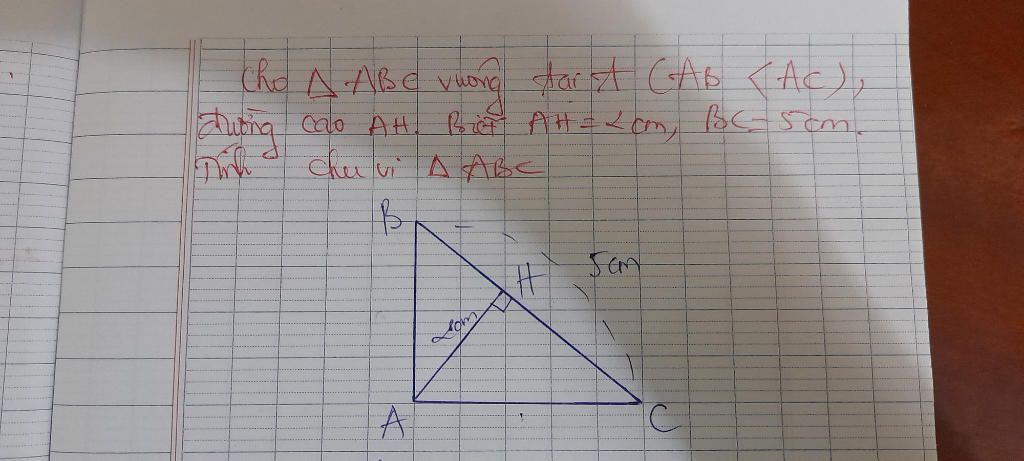 Cho Δ ABC vuông tại A (AB < AC),
đường cao AH. Biết AH = 2cm, BC = 5cm.
Tính chu vi Δ ABC
B
H
5cm
2cm
A
C